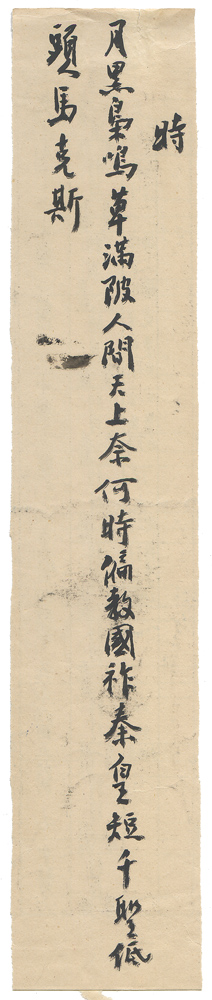 時
月黑梟鳴草滿陂人間天上奈何時偏教國祚秦皇短千聖低
頭馬克斯